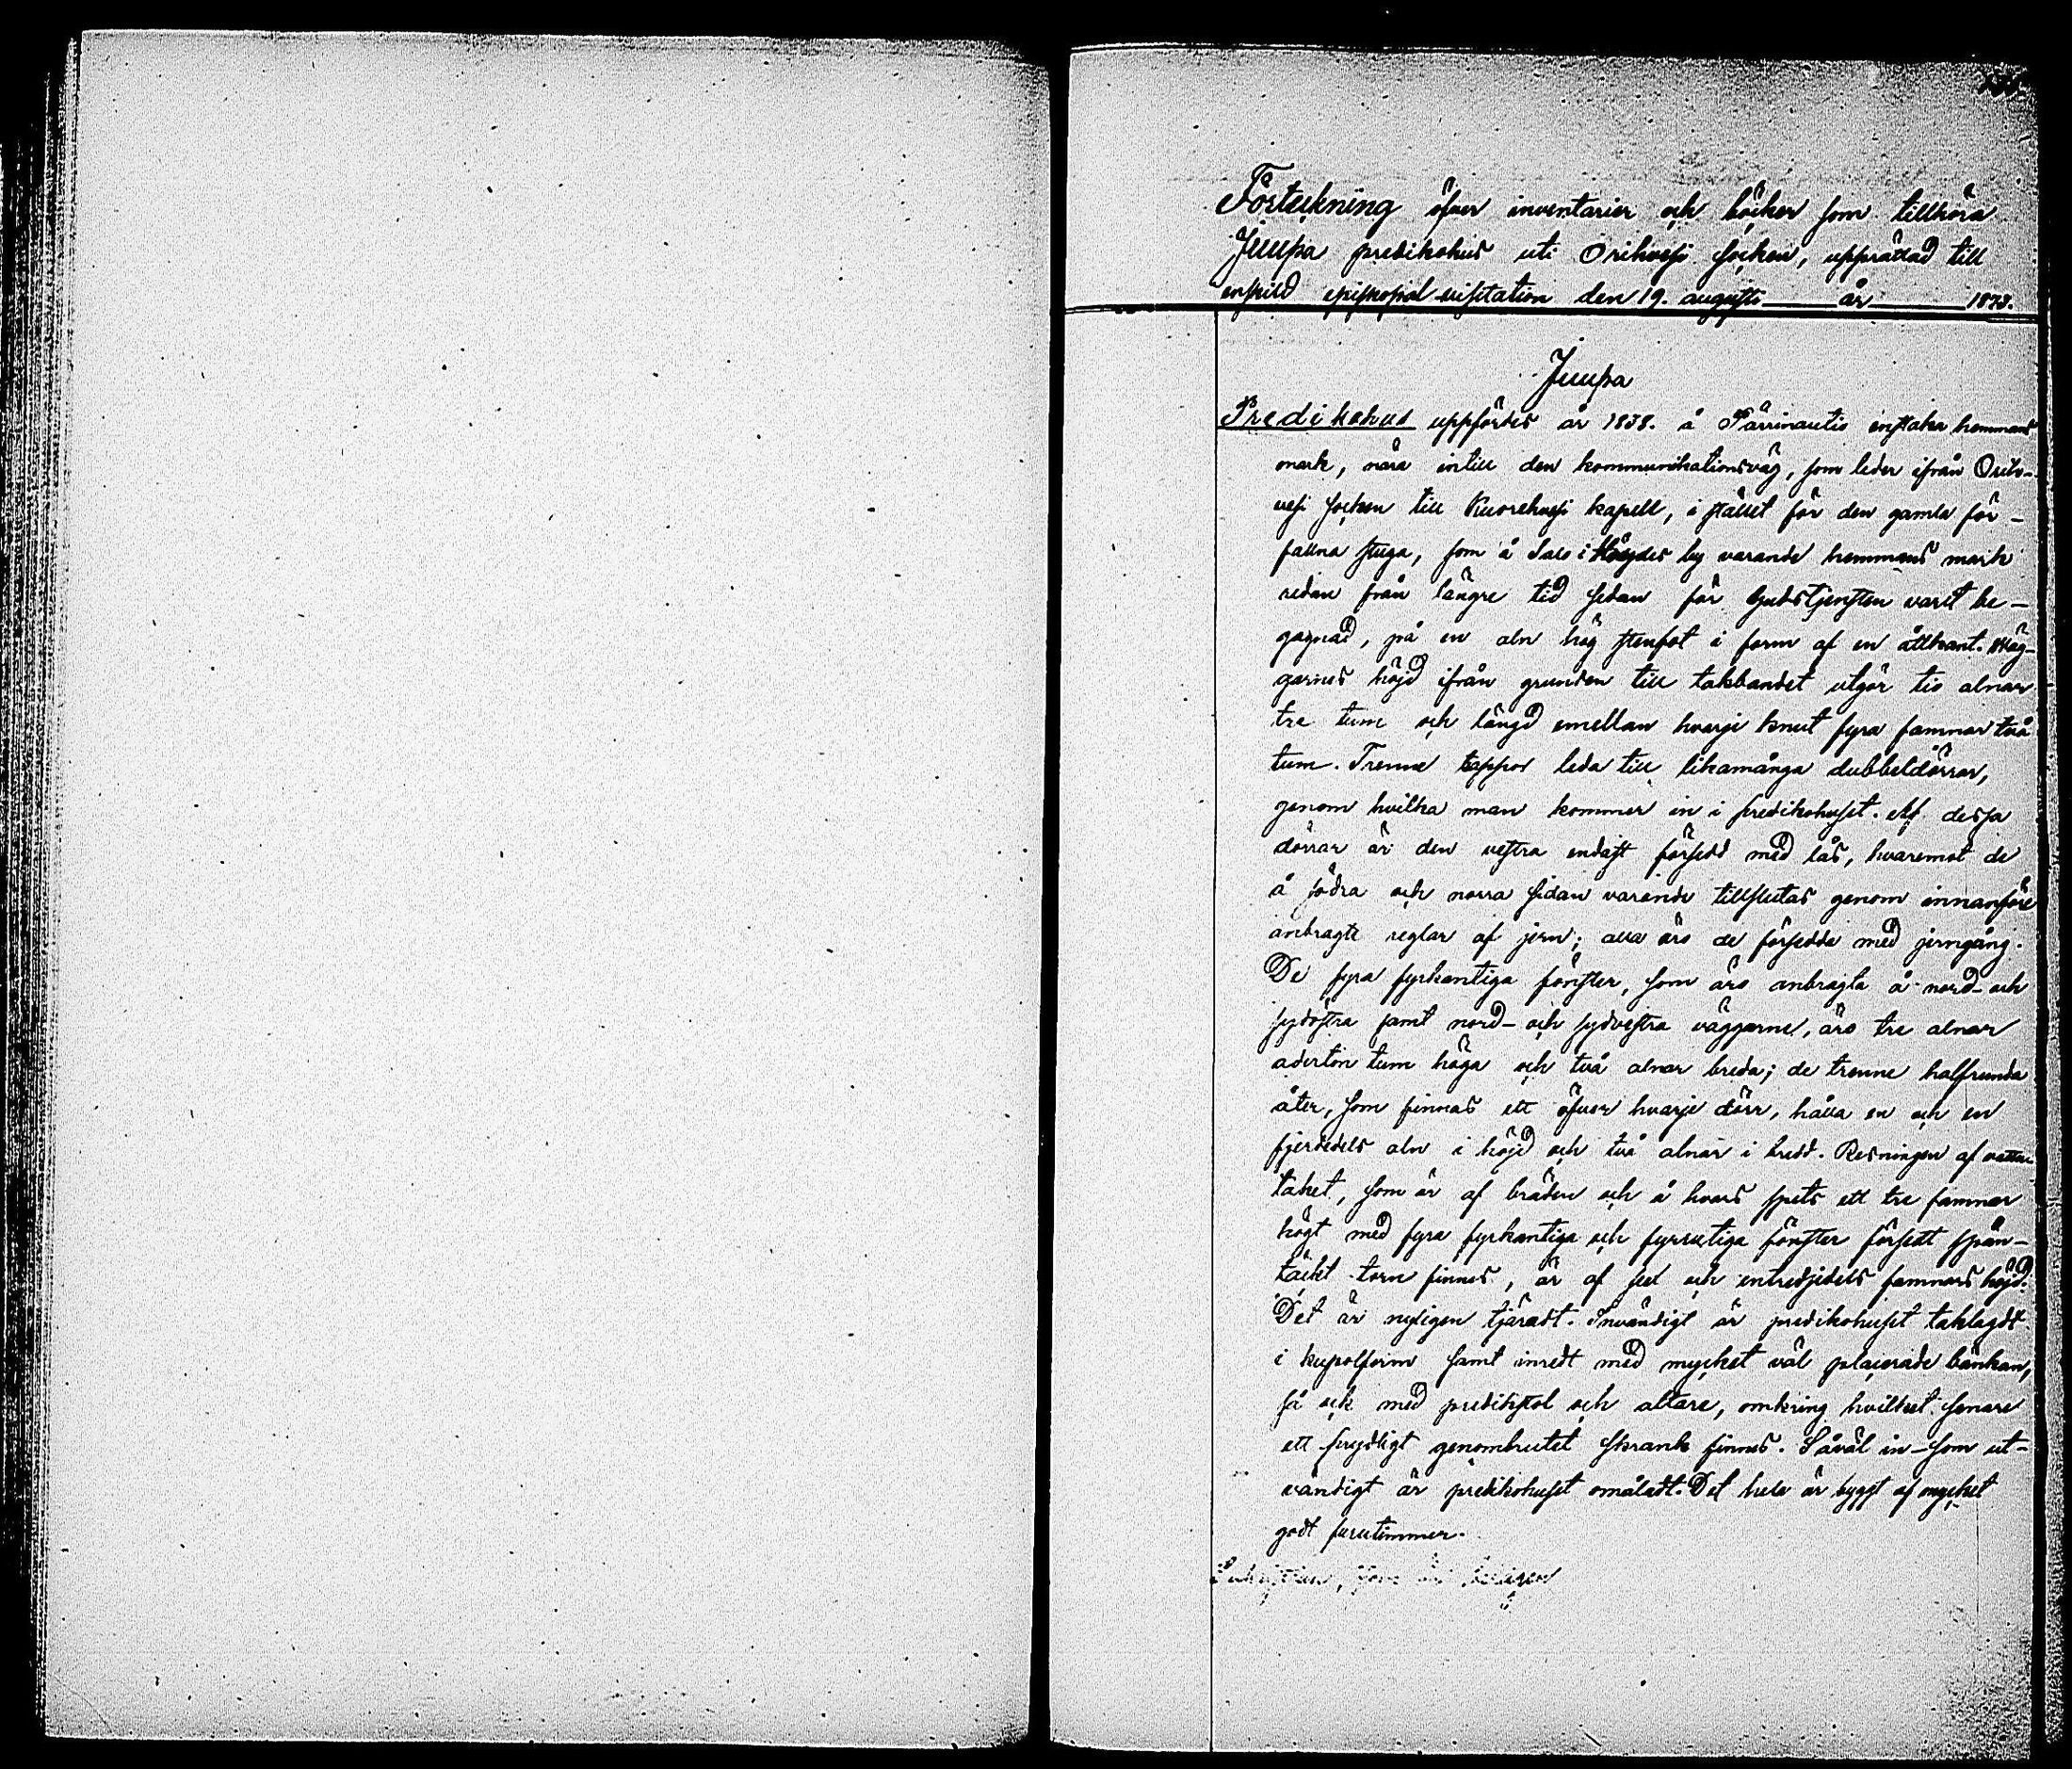 Förteckning öfver inventarier och böcker som tillhöra
Juupa predikohus uti Orihvesi socken, upprättad till
enskild episkopal-visitation den 19. augusti år 1873.
Juupa
Predikohus uppfördes år 1838. å enstaka hemmans
mark, nära intill den kommunikationsväg, som leder ifrån Orih-
vesi socken till Kuorehvesi kapell, i stället för den gamla för-
fallna stuga, som å Salo i by varande hemmans mark
redan från längre tid sedan för Gudstjensten varit be-
gagnad, på en aln hög stenfot i form af en åttkant. Väg-
garnes höjd ifrån grunden till takbandet utgör tio alnar
tre tum och längd emellan hvarje knut fyra famnar två
tum. Trenne trappor leda till likamånga dubbeldörrar,
genom hvilka man kommer in i predikohuset. Af dessa
dörrar är den vestra endast försedd med lås, hvaremot de
å södra och norra sidan varande tillslutas genom innanföre
anbragte reglar af jern; alla äro de försedda med jerngång.
De fyra fyrkantiga fönster, som äro anbragta å nord- och
sydöstra samt nord- och sydvestra väggarne, äro tre alnar
aderton tum höga och två alnar breda; de trenne halfrunda
åter, som finnas ett öfver hvarje dörr, hålla en och en
fjerdedels aln i höjd och två alnar i bredd. Resningen af vatten
taket, som är af bräden och å hvars spets ett tre famnar
högt med fyra fyrkantiga och fyrrutiga fönster försedt spån-
täckt torn finnes, är af sex och entredjedels famnars höjd.
Det är nyligen tjäradt. Invändigt är predikohuset taklagdt
i kupolform samt inredt med mycket väl placerade bänkar,
så ock med predikstol och altare, omkring hvilket senare
ett prydligt genombrutet skrank finnes. Såväl in- som ut-
vändigt är predikohuset omåladt. Det hela är byggt af mycket
godt furutimmer.